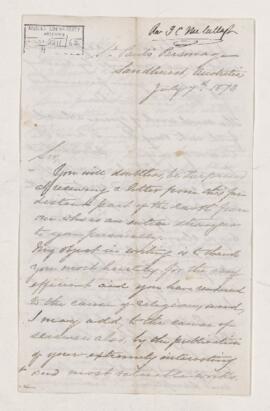 Rev J C MacCullagh
St. Paul's Parsonage
Sandhurst, Australia
July 7th 1873
Sir,
You will doubtless be surprised
at receiving a letter from this far
distant part of the earth from
one who is an entire stranger
to your personally.
My object in writing is to thank
you most heartily for the very
efficient aid you have rendered
to the cause of religion, and,
I may add, to the cause of
science also by the publication
of your extremely interesting
and most valuable works.